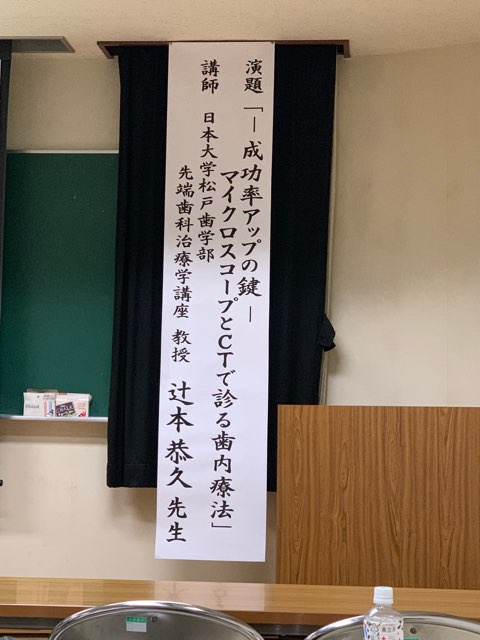 演題「－成功率アップの鍵－
マイクロスコープとCTで診る歯内療法」
講師 日本大学松戸歯学部
先端歯科治療学講座 教授 辻本恭久先生